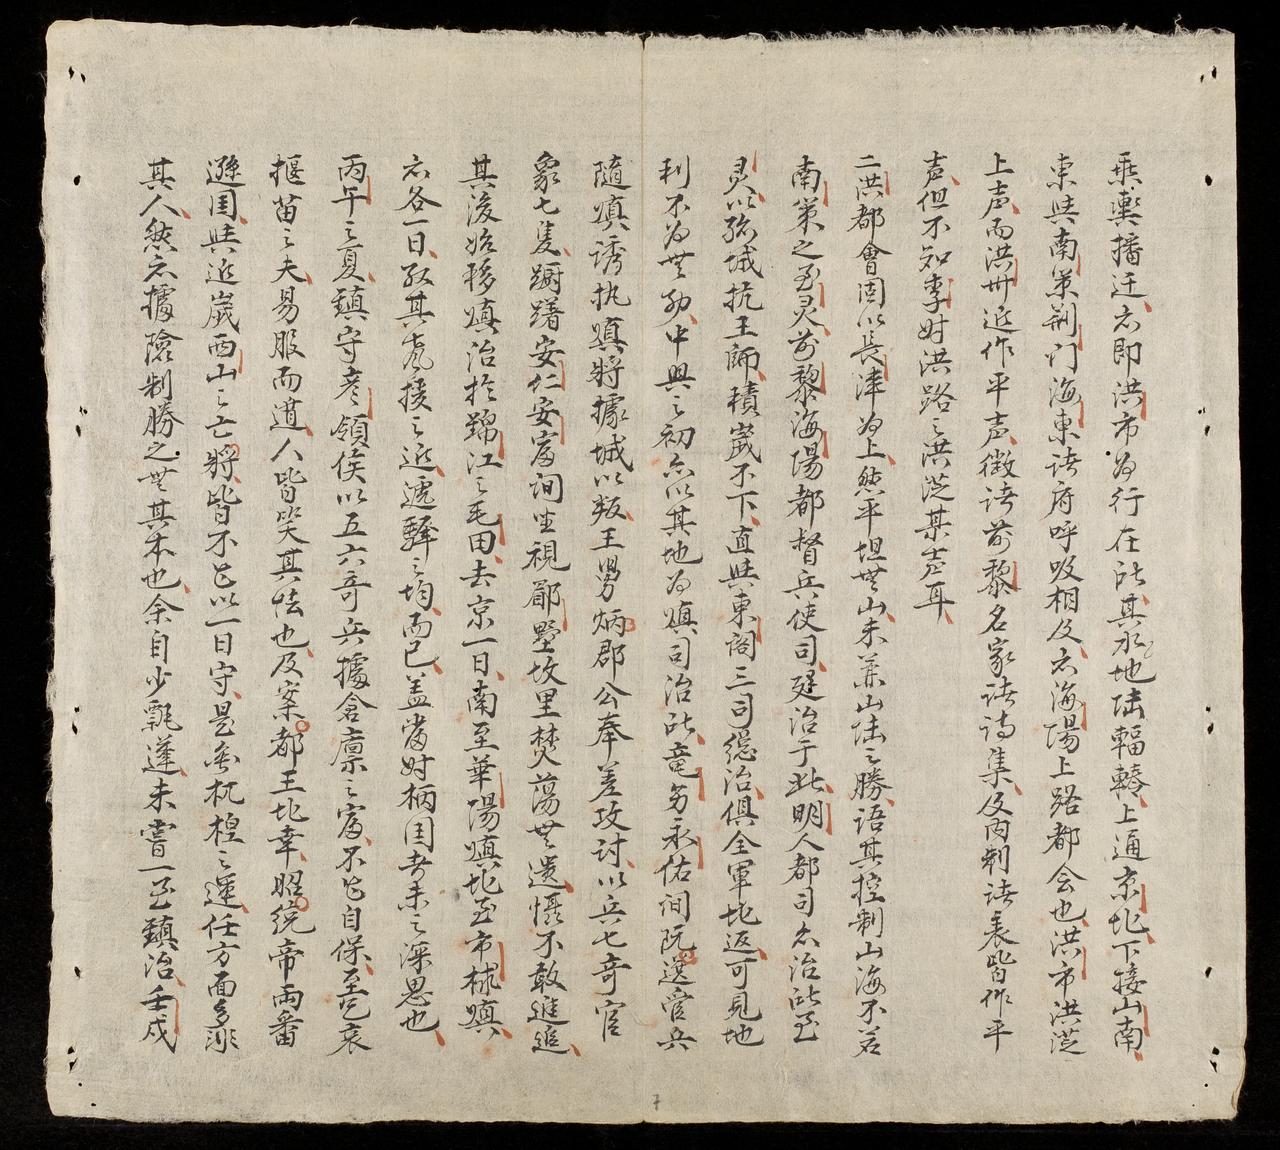 乘輿播迁亦即洪市为行在此其水地陆輻輳上通京北下接山南
東與南策荆门海東诸府呼吸相及亦海陽上路都会也洪市洪茫
上声而洪州近作平声徵诸前黎名家诸诗集及内制诸表皆作平
声但不知李时洪路之洪茫某声耳
二洪都會固以長津为上然平坦無山未兼山陆之勝語其控制山海不若
南策之至灵前黎海陽都督兵使司廷治于此明人都司亦治此至
灵以孤城抗王師積歲不下直與東閣三司總治俱全軍北返可見地
利不为無助中興之初亦以其地为鎮司治此竜多永佑间阮選管兵
隨鎮誘执鎮將據城以叛王男炳郡公奉差攻討以兵七奇官
象七隻蹰躇安仁安富间坐視郿墅坟里焚蕩無遺慑不敢進追
其後始移鎮治於錦江之毛田去京一日南至華陽鎮北至市梂鎮
亦各一日取其声援之近遞驛之均而已盖當时柄国者未之深思也
丙午之夏鎮守彦領侯以五六奇兵據倉廪之富不能自保至乞哀
揠苗之夫易服而道人皆笑其怯也及案都王北幸昭统帝兩番
遜国與近歲西山之亡將皆不能以一日守是虽杌楻之運任方面多非
其人然亦據險制勝之無其本也余自少飄蓬未嘗一至鎮治壬戌